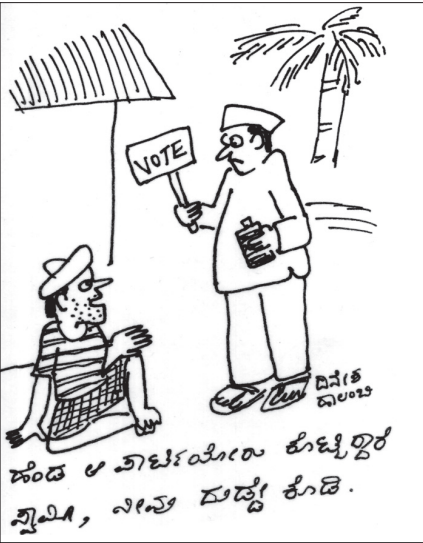 VOTE
ದಿನೇಶ
ಹಾಲಂಬಿ
ಹೆಂಡ ಆ ಪಾರ್ಟಿಯೋರು ಕೊಟ್ಟಿದ್ದಾರೆ
ಸ್ವಾಮಿ, ನೀವು ದುಡ್ಡೇ ಕೊಡಿ.